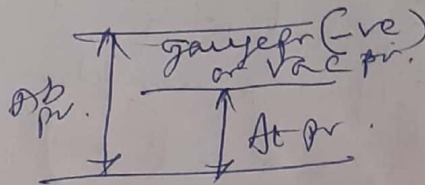 gauge pr (-ve)
or Vac pr.
Ab
pr.
At pr.